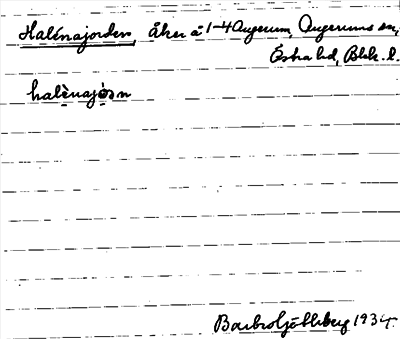 Hallnajorden, åker å 1-4 Augerum, Augerums sn,
Östra hd, Blek. l.
halènajo̱ṣn
Barbro Ljöthberg 1934.